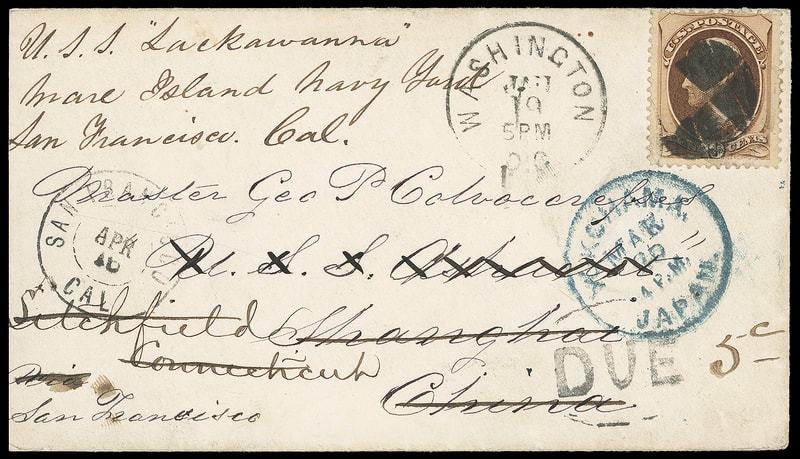 U.S.S. "Lackawanna"
Mare Island Navy Yard
San Francisco. Cal.
WASHINGTON
JAN
19
5PM
D.C.
U.S. POSTAGE
CENTS
Master Geo P Colvocoresses
U. S. S.
SAN FRANCISCO
APR
16
CAL
YOKOHAMA.
MAR
4 P.M.
JAPAN.
Litchfield Shanghai
Connecticut
DUE 5c
via China
San Francisco